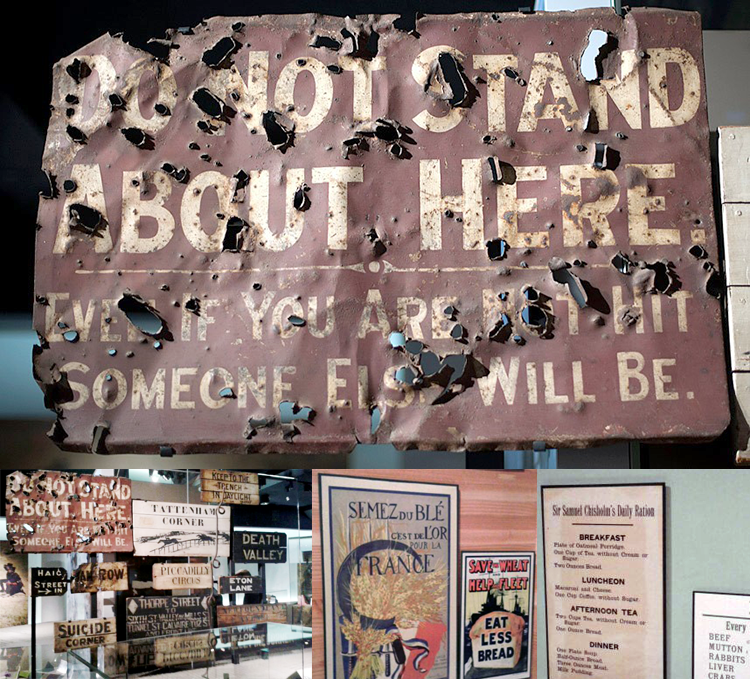 DO NOT STAND
ABOUT HERE.
EVEN IF YOU ARE NOT HIT
SOMEONE ELSE WILL BE.
DO NOT STAND
ABOUT HERE.
EVEN IF YOU ARE NOT HIT
SOMEONE ELSE WILL BE.
KEEP TO THE
TRENCH
IN DAYLIGHT
TATTENHAM
CORNER
DEATH
VALLEY
HAIG
STREET
IN
ROW
PICCADILLY
CIRCUS
ETON
LANE
THORPE STREET
TO
SUICIDE
CORNER
SEMEZ DU BLÉ
C'EST DE L'OR
POUR LA
FRANCE
SAVE THE WHEAT
AND
HELP THE FLEET
EAT
LESS
BREAD
Sir Samuel Chisholm's Daily Ration
BREAKFAST
Plate of Oatmeal Porridge.
One Cup of Tea, without Cream or
Sugar.
Two Ounces Bread.
LUNCHEON
Macaroni and Cheese.
One Cup Coffee, without Sugar.
AFTERNOON TEA
Two Cups Tea, without Cream or
Sugar.
One Ounce Bread.
DINNER
One Plate Soup.
Half-Ounce Bread.
Three Ounces Meat.
Milk Pudding.
Every
BEEF
MUTTON
RABBITS
LIVER
CRABS